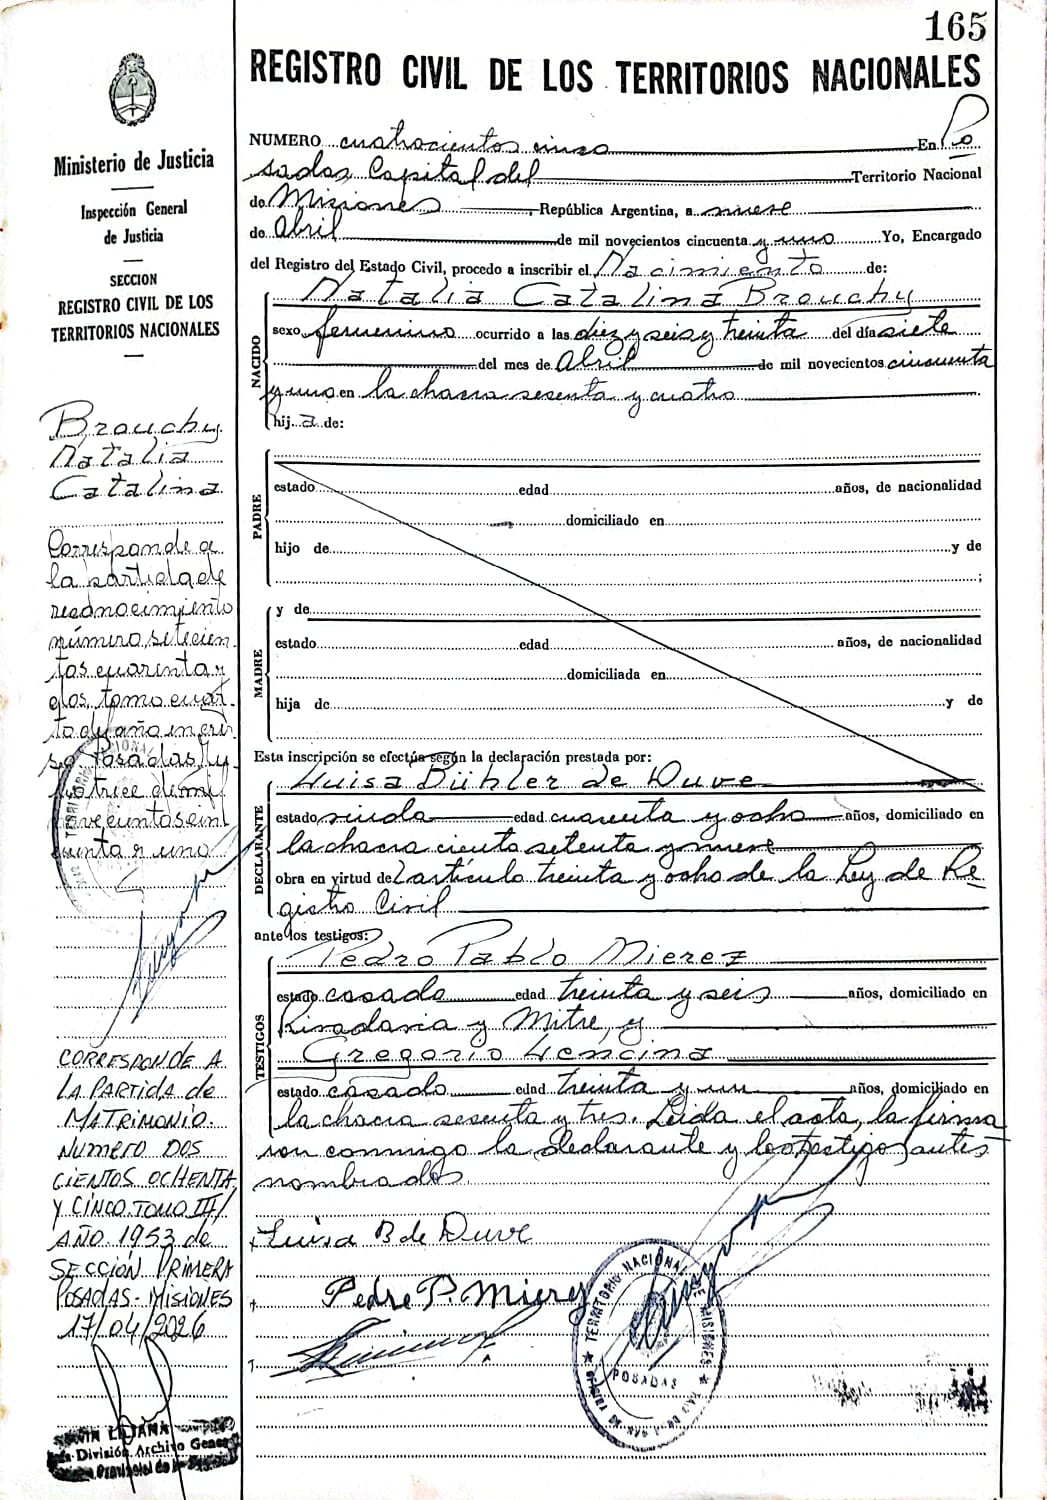 165
REGISTRO CIVIL DE LOS TERRITORIOS NACIONALES
Ministerio de Justicia
Inspección General
de Justicia
SECCION
REGISTRO CIVIL DE LOS
TERRITORIOS NACIONALES
Brouchy
Natalia
Catalina
Corresponde a
la partida de
reconocimiento
número setecien
tos cuarenta y
dos, tomo cuar
to del año in scri
so Posadas, Ju
nueve cientos cin
cuenta y uno
CORRESPONDE A
LA PARTIDA de
MATRIMONIO
NUMERO DOS
CIENTOS OCHENTA
Y CINCO. TOMO III/
AÑO 1953 de
SECCIÓN PRIMERA
POSADAS - MISIONES
17/04/2026
LILIANA
División Archivo Gene
Provincial de
NUMERO cuatrocientos cinco En Po
sadas Capital del Territorio Nacional
de Misiones, República Argentina, a nueve
de Abril de mil novecientos cincuenta y uno Yo, Encargado
del Registro del Estado Civil, procedo a inscribir el Nacimiento de:
NACIDO
Natalia Catalina Brouchy
sexo femenino ocurrido a las diez y seis y treinta del día siete
del mes de Abril de mil novecientos cincuenta
y uno en la chacra sesenta y cuatro
hija de:
PADRE
estado edad años, de nacionalidad
domiciliado en
hijo de y de
;
MADRE
y de
estado edad años, de nacionalidad
domiciliada en
hija de y de
Esta inscripción se efectúa según la declaración prestada por:
DECLARANTE
Luisa Bühler de Duve
estado viuda edad cuarenta y ocho años, domiciliado en
la chacra ciento setenta y nueve
obra en virtud del artículo treinta y ocho de la Ley de Re
gistro Civil
ante los testigos:
TESTIGOS
Pedro Pablo Mierez
estado casado edad treinta y seis años, domiciliado en
Rivadavia y Mitre, y
Gregorio Lencina
estado casado edad treinta y un años, domiciliado en
la chacra sesenta y tres. Leída el acta, la firma
ron conmigo la declarante y los testigos antes
nombrados.
Luisa B de Duve
Pedro P. Mierez
TERRITORIO NACIONAL DE MISIONES
POSADAS